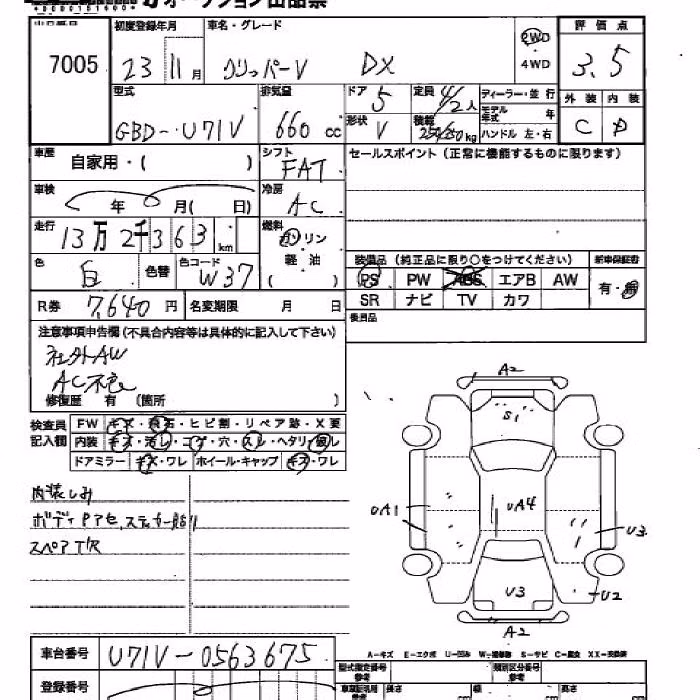 オークション出品票
7005
初度登録年月
23 11月
車名・グレード
クリッパーV DX
2WD
・
4WD
評価点
3.5
外装 内装
C D
型式
GBD-U71V
排気量
660 cc
ドア
5
形状
V
定員
4/2人
積載
250/350kg
ディーラー・並行
モデル年式 年
ハンドル 左・右
車歴
自家用・( )
シフト
FAT
セールスポイント(正常に機能するものに限ります)
車検
年 月( 日)
冷房
AC
走行
13万2千363km
燃料
ガソリン
軽・油
( )
色
白
色替
色コード
W37
装備品(純正品に限り○をつけてください)
新車保証書
PS PW ABS エアB AW
SR ナビ TV カワ
有・無
R券 7,640円
名変期限 月 日
後日品
注意事項申告欄(不具合内容等は具体的に記入して下さい)
社外AW
AC不良
修復歴 有 (箇所 )
検査員
記入欄
FW キズ・飛石・ヒビ割・リペア跡・X要
内装 キズ・汚レ・コゲ・穴・スレ・ヘタリ・臭し
ドアミラー キズ・ワレ ホイール・キャップ キズ・ワレ
内装しみ
ボディPアセ,ステッカー跡有り
スペアT/R
A2
S1
UA1
UA4
U3
U3
U2
A2
A-キズ E-エクボ U-凹み W-補修跡 S-サビ C-腐食 XX-交換済
車台番号 U71V-0563675
型式指定番号
類別区分番号
登録番号
長さ cm 幅 cm 高さ cm